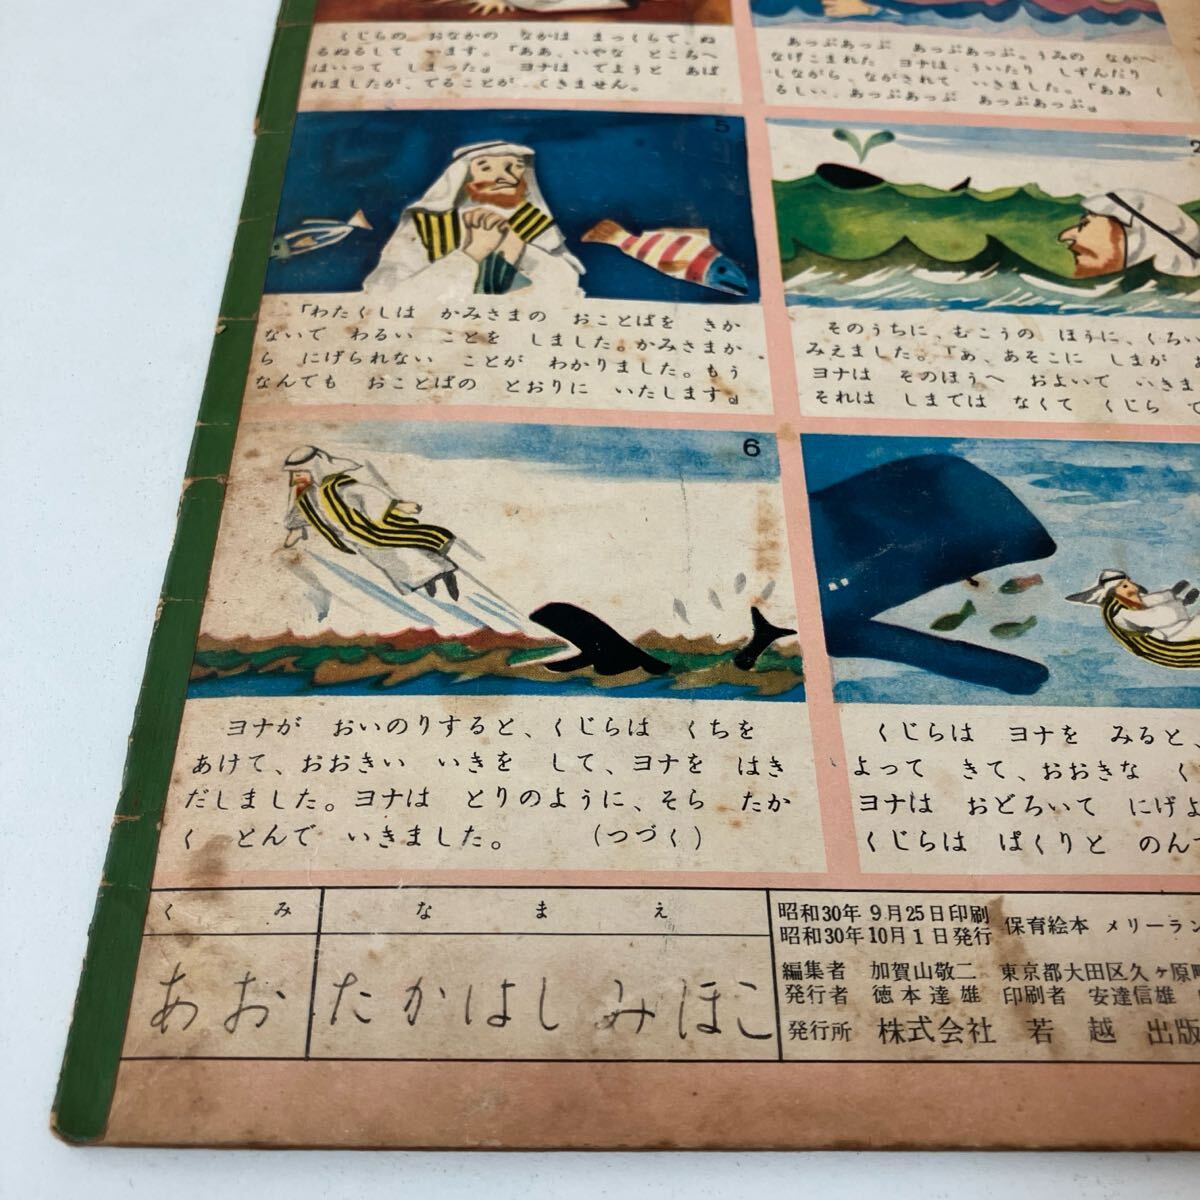 あっぷあっぷ あっぷあっぷ。うみの なかへ
なげこまれた ヨナは、ういたり しずんだり
しながら、ながされて いきました。「ああ く
るしい、あっぷあっぷ あっぷあっぷ」
2
そのうちに、むこうの ほうに、くろい
みえました。「あ、あそこに しまが
ヨナは そのほうへ およいで いきま
それは しまでは なくて くじら で
くじらは ヨナを みると、
よって きて、おおきな く
ヨナは おどろいて にげよ
くじらは ぱくりと のんで
くじらの おなかの なかは まっくらで、ぬ
るぬるして います。「ああ、いやな ところへ
はいって しまった」 ヨナは でようと あば
れましたが、でることが、できません。
5
「わたくしは かみさまの おことばを きか
ないで わるい ことを しました。かみさまか
ら にげられない ことが わかりました。もう
なんでも おことばの とおりに いたします」
6
ヨナが おいのりすると、くじらは くちを
あけて、おおきい いきを して、ヨナを はき
だしました。ヨナは とりのように、そら たか
く とんで いきました。 (つづく)
くみ
なまえ
あお
たかはしみほこ
昭和30年 9月25日印刷
昭和30年10月1日発行
保育絵本 メリーラン
編集者 加賀山敬二 東京都大田区久ヶ原町
発行者 徳本達雄 印刷者 安達信雄
発行所 株式会社 若越出版